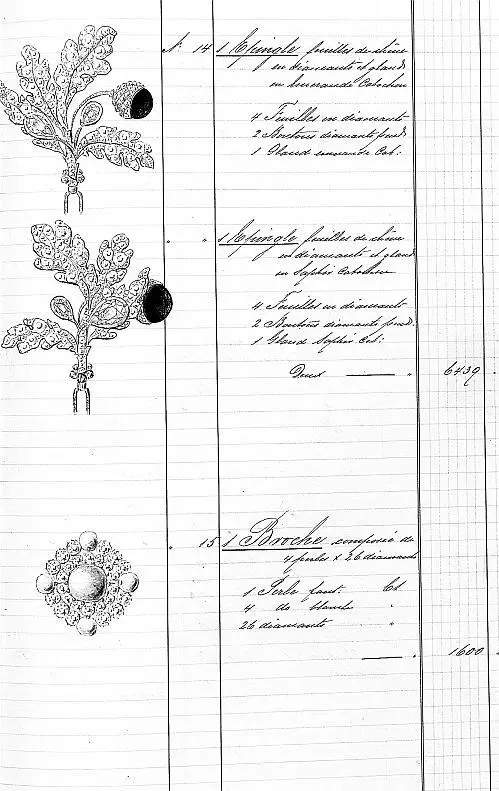 N° 14 1 Epingle feuilles de chêne
en diamants et gland
en émeraude Cabochon
4 Feuilles en diamants
2 Boutons diamants fond.
1 Gland émeraude Cab:
" " 1 Epingle feuilles de chêne
en diamants et gland
en Saphir Cabochon
4 Feuilles en diamants
2 Boutons diamants fond.
1 Gland Saphir Cab:
Deux — " 6439
" 15 1 Broche composée de
4 perles & 26 diamants
1 Perle fant. Ct
4 do blanche "
26 diamants "
— " 1600